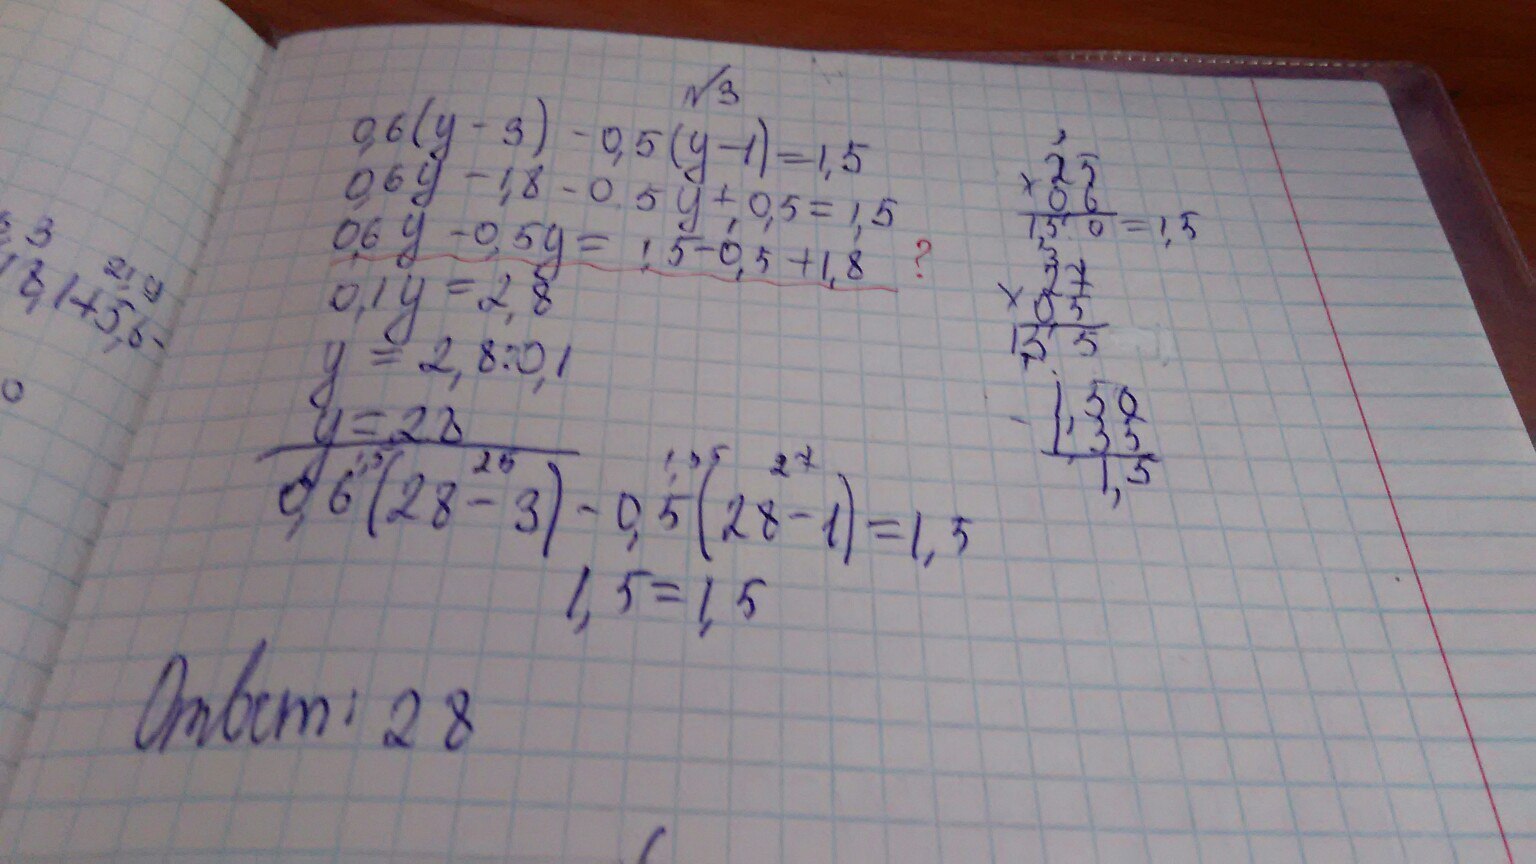 №3
0,6(y - 3) - 0,5(y - 1) = 1,5
0,6y - 1,8 - 0.5y + 0,5 = 1,5
0,6y - 0,5y = 1,5 - 0,5 + 1,8 ?
0,1y = 2,8
y = 2,8:0,1
y = 28
1,5 25 1,35 27
0,6(28 - 3) - 0,5(28 - 1) = 1,5
1,5 = 1,5
Ответ: 28
25
× 06
1,5 0 = 1,5
3
27
× 05
135
- 1,50
1,35
1,5
3
18,1+5,6-
0